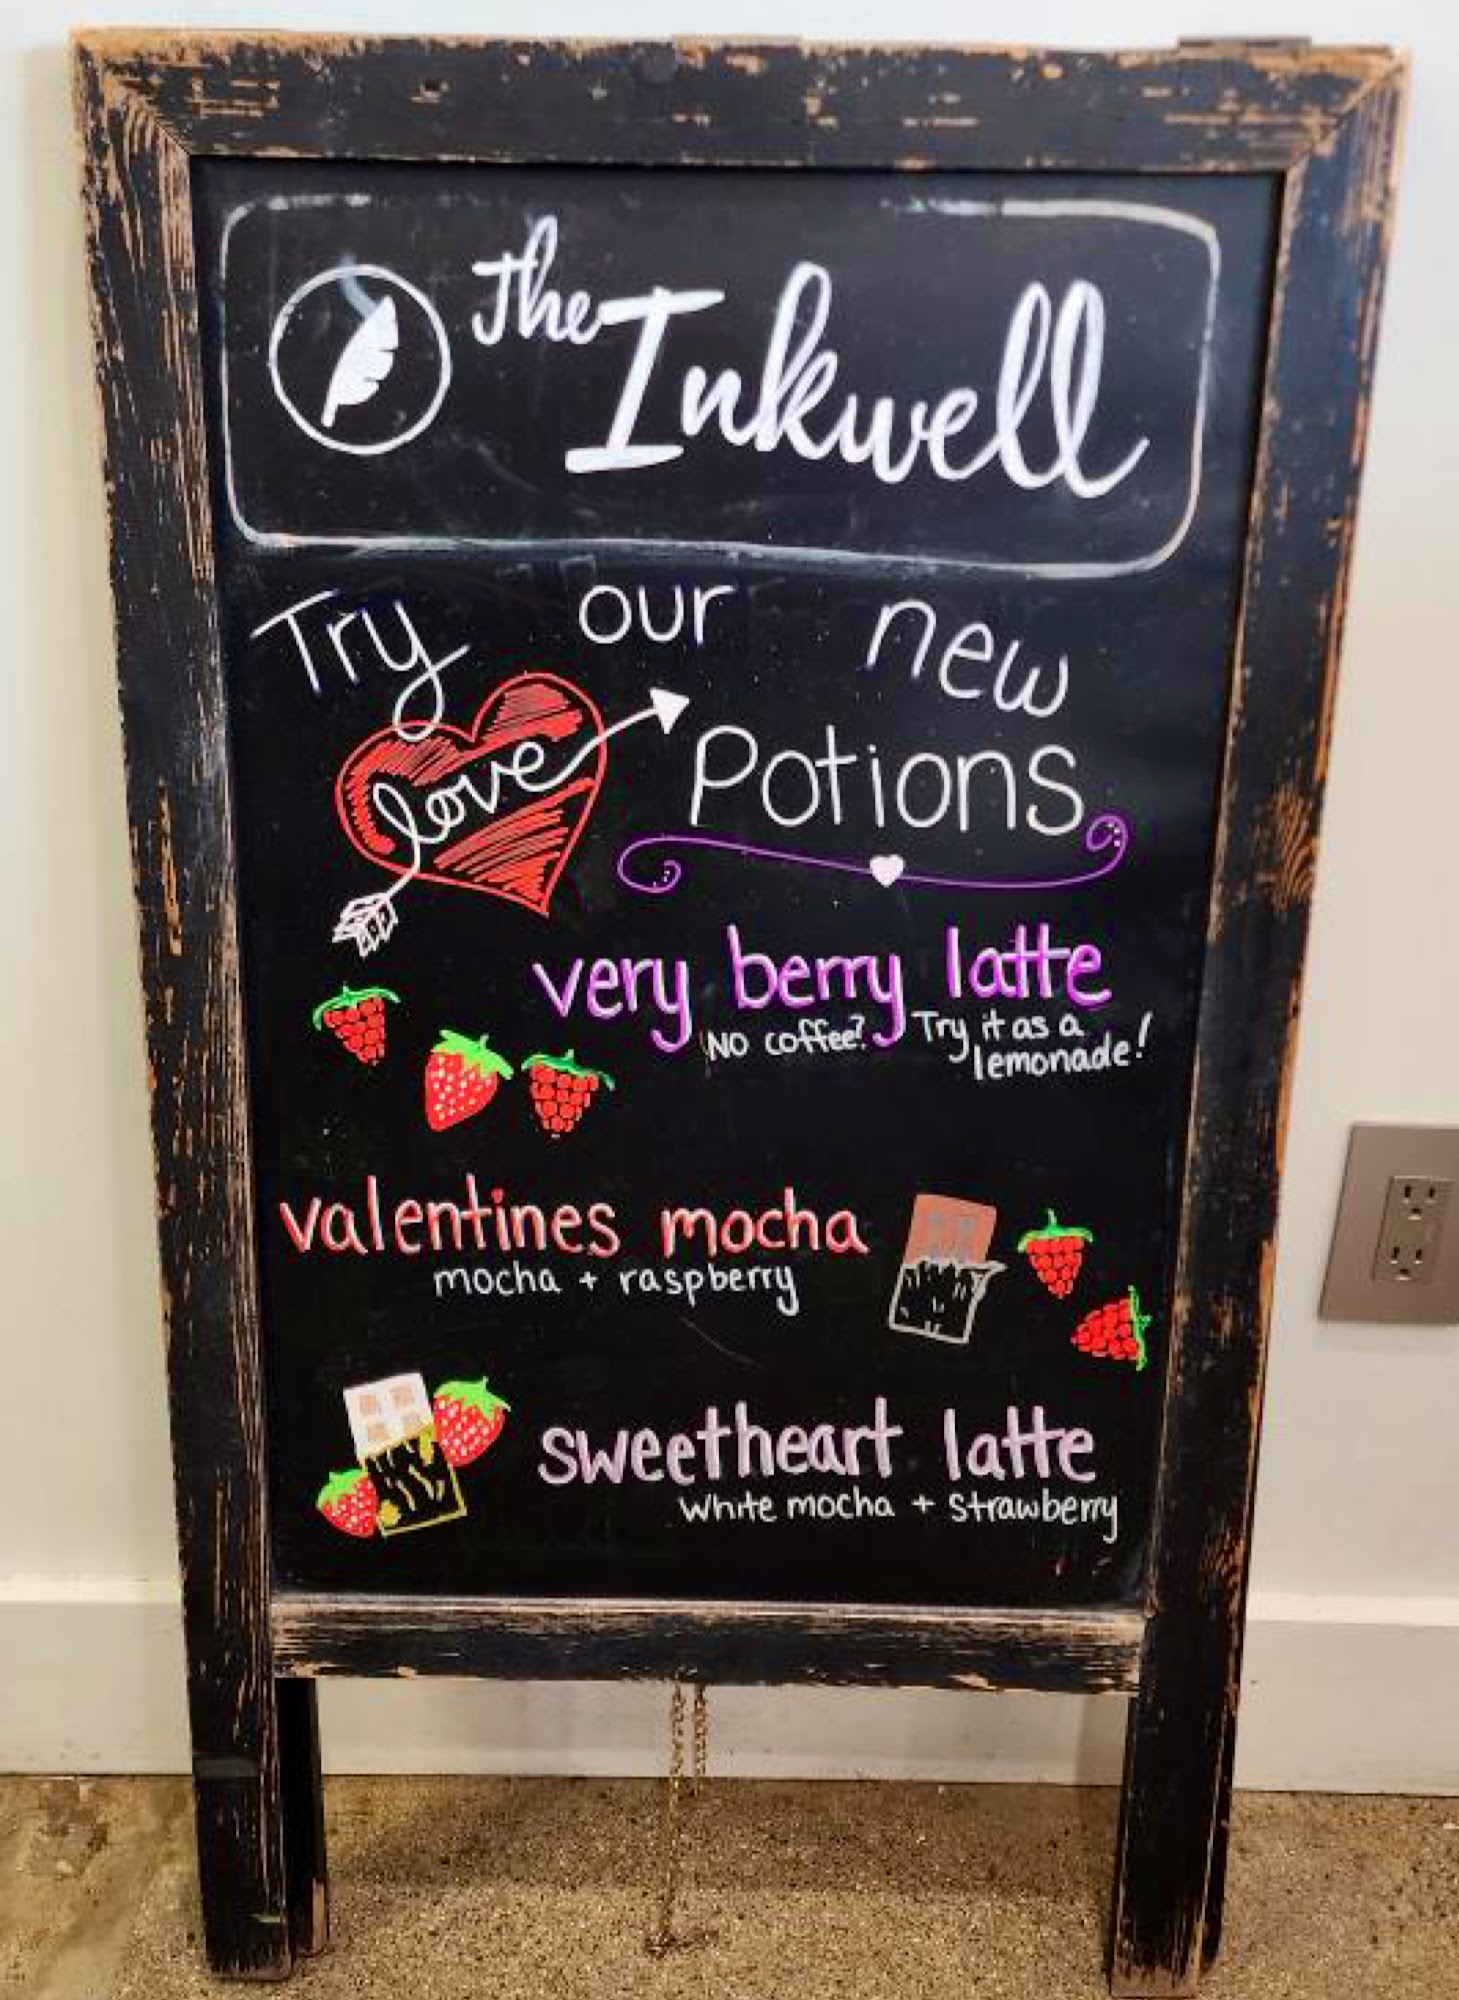 The Inkwell
Try our new
love Potions
very berry latte
No coffee? Try it as a
lemonade!
valentines mocha
mocha + raspberry
sweetheart latte
White mocha + Strawberry